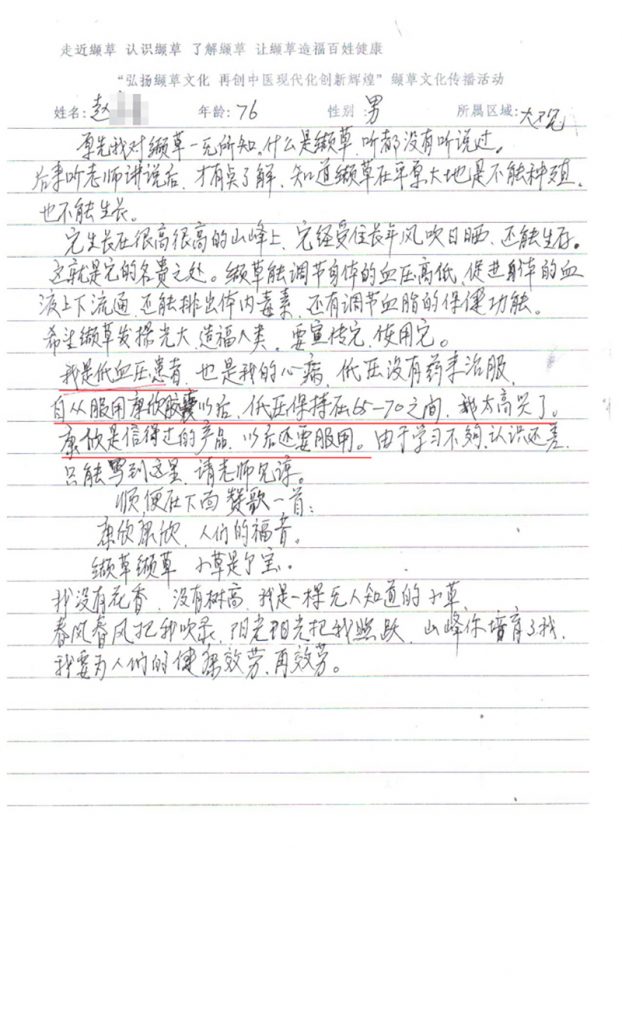 走近缬草 认识缬草 了解缬草 让缬草造福百姓健康
“弘扬缬草文化 再创中医现代化创新辉煌”缬草文化传播活动
姓名: 赵 年龄: 76 性别 男 所属区域:
原先我对缬草一无所知。什么是缬草,听都没有听说过。
后来听老师讲说后,才有点了解,知道缬草在平原大地是不能种殖,
也不能生长。
它生长在很高很高的山峰上,它经受住长年风吹日晒,还能生存。
这就是它的名贵之处。缬草能调节身体的血压高低,促进身体的血
液上下流通,还能排出体内毒素,还有调节血脂的保健功能。
希望缬草发揚光大,造福人类,要宣传它,使用它。
我是低血压患者,也是我的心病,低压没有药来治服,
自从服用康欣胶囊以后,低压保持在65-70之间,我太高兴了。
康欣是信得过的产品,以后还要服用。由于学习不够,认识还差,
只能写到这里,请老师见谅。
顺便在下面赞歌一首:
康欣康欣,人们的福音。
缬草缬草,小草是个宝。
我没有花香,没有树高,我是一棵无人知道的小草,
春风春风把我吹绿,阳光阳光把我照跃,山峰你培育了我,
我要为人们的健康效劳,再效劳。